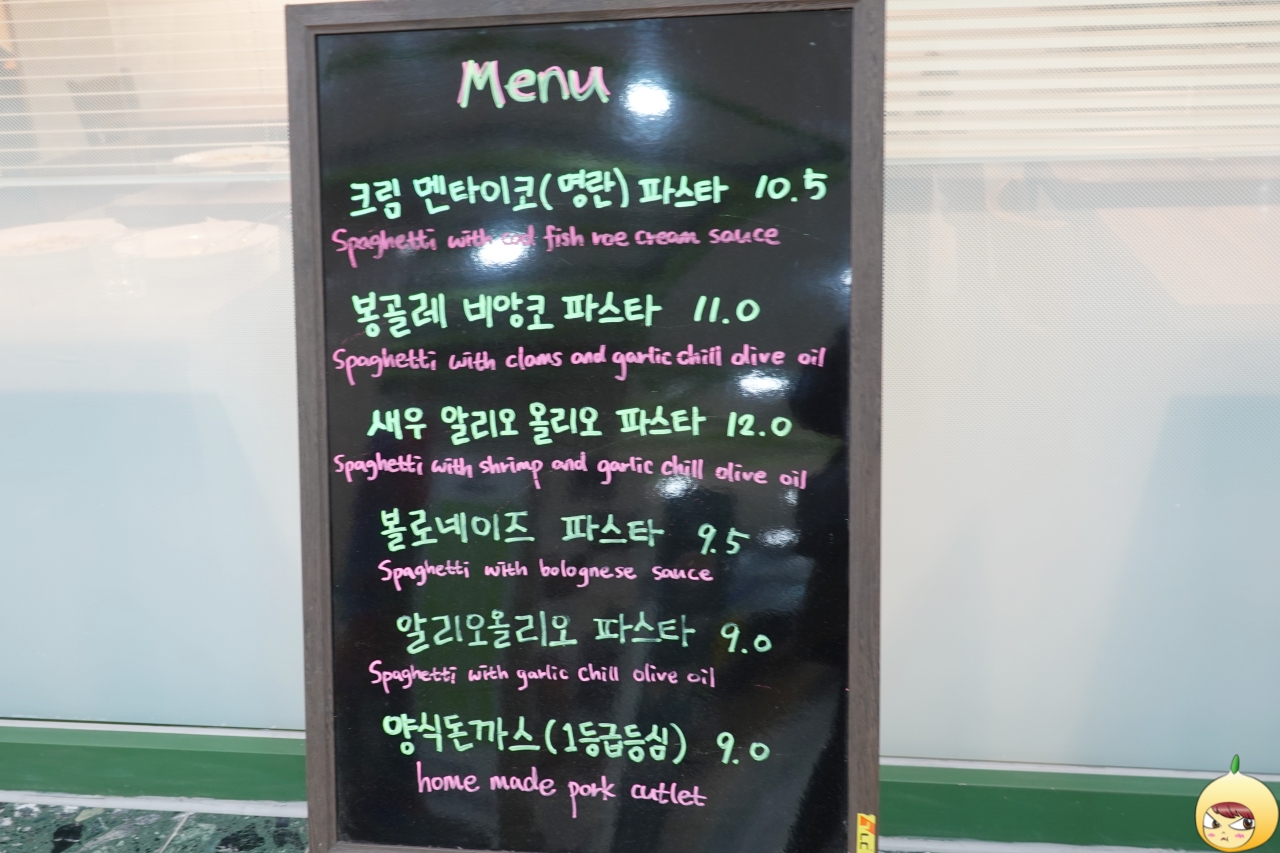 Menu
크림 멘타이코(명란) 파스타 10.5
Spaghetti with cod fish roe cream sauce
봉골레 비앙코 파스타 11.0
Spaghetti with clams and garlic chill olive oil
새우 알리오 올리오 파스타 12.0
Spaghetti with shrimp and garlic chill olive oil
볼로네이즈 파스타 9.5
Spaghetti with bolognese sauce
알리오올리오 파스타 9.0
Spaghetti with garlic chill olive oil
양식돈까스(1등급등심) 9.0
home made pork cutlet